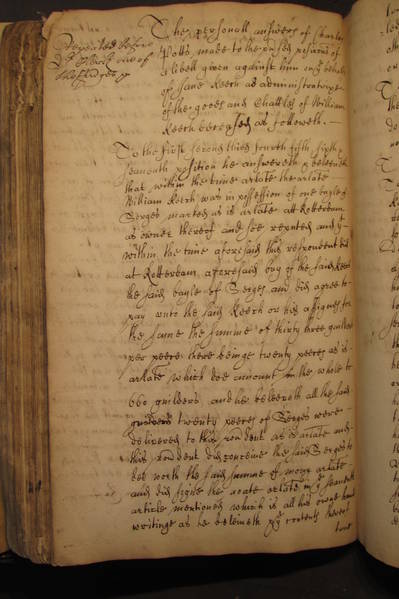 Repeated before
Dr Clerk one of
The personall answers of Charles
Potts made to the psons posicons of
a libell given against him on ye behalfe
of Jane Keech as administratrixe
of the goods and Chattles of William
Keech deceased as followeth.
To the first second third fourth fifth sixth &
seaventh position he answereth & beleeveth
that within the time arlate the arlate
William Keech was in possession of one bayle of
Serges marked as is arlate att Rotterdam
as owner thereof and soe reputed and yt
within the time aforesaid this respondent did
at Rotterdam aforesaid buy of the said Keech
the said bayle of Serges and did agree to
pay unto the said Keech or his assignes for
the same the summe of thirty three guilders
per peece there beinge twenty peeces as is
arlate which doe amount in the whole to
660 guilders and he beleeveth all the said
guilders twenty peeces of Serges were
delivered to this rondent as is arlate and
this rondent did conceive the said Serges to
bee worth the said summe of mony arlate
and did signe the noate arlate in ye seaventh
article mentioned which is all his owne hand
writinge as he beleiveth ye contents thereof